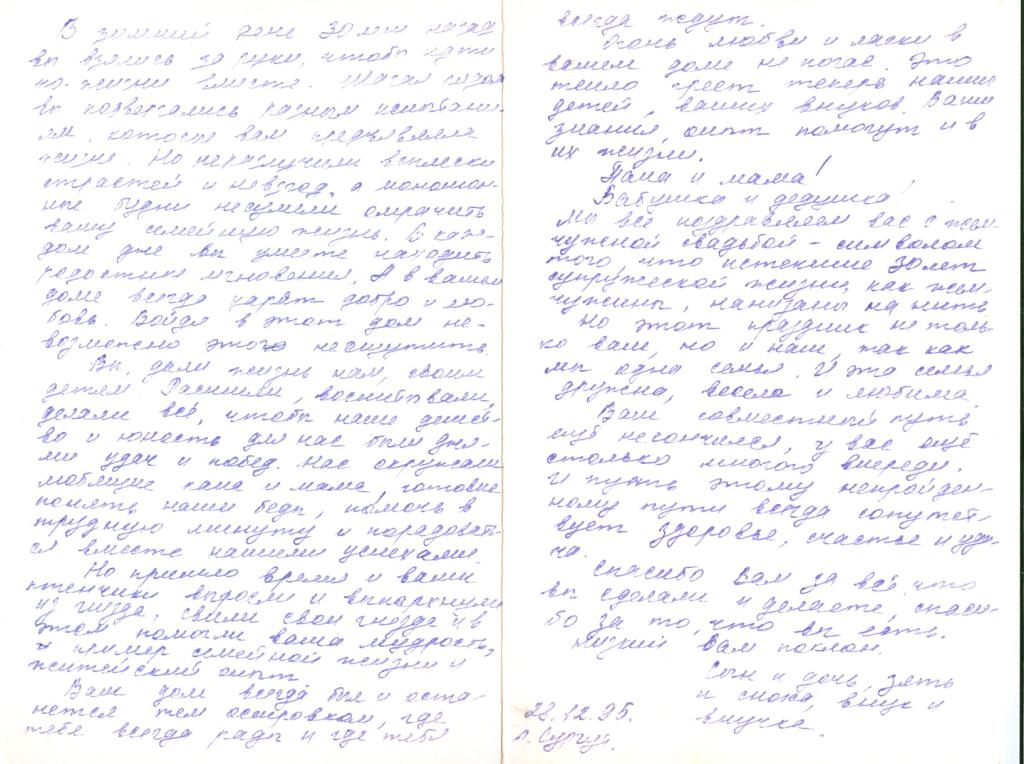 В зимний день 30 лет назад
вы взялись за руки, чтобы идти
по жизни вместе. Шагая рядом
вы подвергались разным испытани-
ям, которые вам предъявляла
жизнь. Но неразлучили всплески
страстей и невзгод, а монотон-
ные будни несумели омрачить
вашу семейную жизнь. В каж-
дом дне вы умеете находить
радостные мгновения. А в вашем
доме всегда царят добро и лю-
бовь. Войдя в этот дом не-
возможно этого неощутить.
Вы, дали жизнь нам, своим
детям. Растили, воспитывали,
делали всё, чтобы наше детст-
во и юность для нас были дня-
ми удач и побед. Нас окружали
любящие папа и мама, готовые
понять наши беды, помочь в
трудную минуту и порадовать-
ся вместе нашими успехами.
Но пришло время и ваши
птенчики выросли и выпорхнули
из гнезда, свили свои гнезда и в
этом помогли ваша мудрость,
пример семейной жизни и
житейский опыт
Ваш дом всегда был и оста-
нется тем островком, где
тебе всегда рады и где тебя
всегда ждут.
Огонь любви и ласки в
вашем доме не погас. Это
тепло греет теперь наших
детей, ваших внуков. Ваши
знания, опыт помогут и в
их жизни.
Папа и мама!
Бабушка и дедушка!
Мы все поздравляем вас с жем-
чужной свадьбой - символом
того, что истекшие 30 лет
супружеской жизни, как жем-
чужины, нанизаны на нить.
Но этот праздник не толь-
ко ваш, но и наш, так как
мы одна семья. И эта семья
дружна, весела и любима.
Ваш совместный путь
ещё незакончился, у вас ещё
столько многого впереди.
И пусть этому непройден-
ному пути всегда сопутст-
вует здоровье, счастье и уда-
ча.
Спасибо Вам за всё, что
вы сделали и делаете, спаси-
бо за то, что вы есть.
Низкий Вам поклон.
Сын и дочь, зять
и сноха, внук и
внучка.
28.12.95.
г. Сургут.